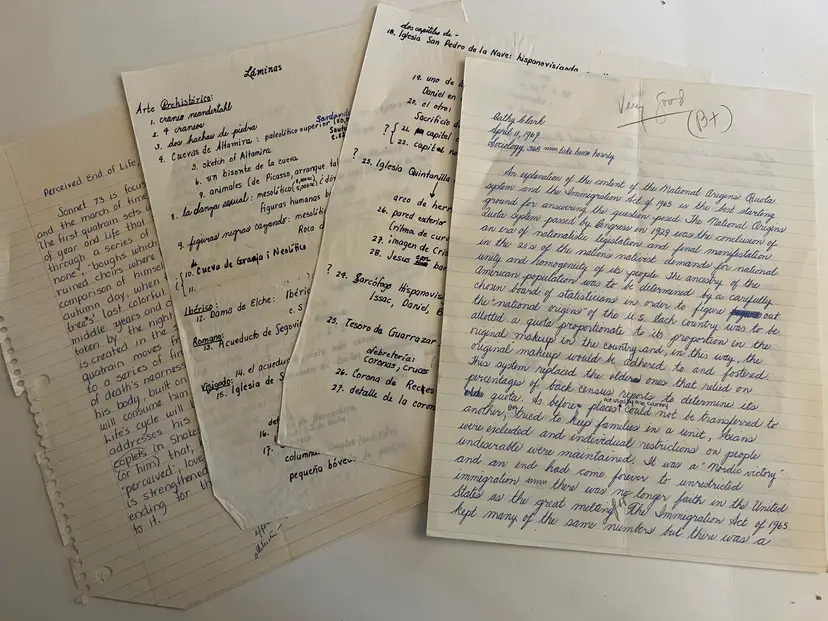 Perceived End of Life
Sonnet 73 is focus
and the march of time
The first quatrain sets
of year and life that
through a series of
none", "boughs which
ruined choirs where
comparison of himsel
autumn day, when
tree's last colorful
middle years and
taken by the night
is created in the
quatrain moves fr
to a series of fin
of death's nearness
his body, built on
will consume him
Life's cycle will
addresses his
coplets in Shake
(or him) that,
"perceived", love
is strengthened
ending for th
to it.
Láminas
Arte Prehistórico:
1. craneo neandertahl
2. 4 craneos
3. dos hachas de piedra
4. Cuevas de Altamira: paleolítico superior
5. sketch of Altamira
6. un bisonte de la cueva
7. animales (de Picasso, arranque tal
8. la danza sexual: mesolítico
Figuras humanas b
9. figuras negras cazando: mesolíti
Roca d
10. Cueva de Granja; Neolítico
11.
Ibérico:
12. Dama de Elche: Ibéric
Romano:
13. Acueducto de Segovi
Visigodo: 14. el acueduc
15. Iglesia de S
16.
17.
column
pequeña bóved
dos capiteles de -
18. Iglesia San Pedro de la Nave: hispanovisigodo
19. uno de l
Daniel en
20. el otro:
Sacrificio d
? 21. capital
22. capitel n
? 23. Iglesia Quintanilla
arco de herr
26. pared exterior
(ritma de cur
27. imagen de Cris
28. Jesus con bar
? 24. Sarcófago Hispanovis
Isaac, Daniel, B
25. Tesoro de Guarrazar
orfebrería:
coronas, cruces
26. Corona de Reces
27. detalle de la coron
Very Good
B+
Cathy Clark
April 11, 1969
Sociology 365 — take home hourly
An explanation of the content of the National Origins Quota
system and the Immigration Act of 1965 is the best starting
ground for answering the question posed. The National Origins
Quota System passed by Congress in 1929 was the conclusion of
an era of nationalistic legislation and final manifestation
in the 20's of the nation's nativist demands for national
unity and homogeneity of its people. The ancestry of the
American population was to be determined by a carefully
chosen board of statisticians in order to figure out
the national origins of the U.S. Each country was to be
allotted a quota proportionate to its proportion in the
original makeup in the country and, in this way, the
original makeup would be adhered to and fostered.
This system replaced the older ones that relied on
percentages of back census reports to determine its
quota. As before, places not used by one country could not be transferred to
another, tried to keep families in a unit, Asians
were excluded and individual restrictions on people
undesirable were maintained. It was a "Nordic victory"
and an end had come forever to unrestricted
immigration — there was no longer faith in the United
States as the great melting pot. The Immigration Act of 1965
kept many of the same numbers but there was a